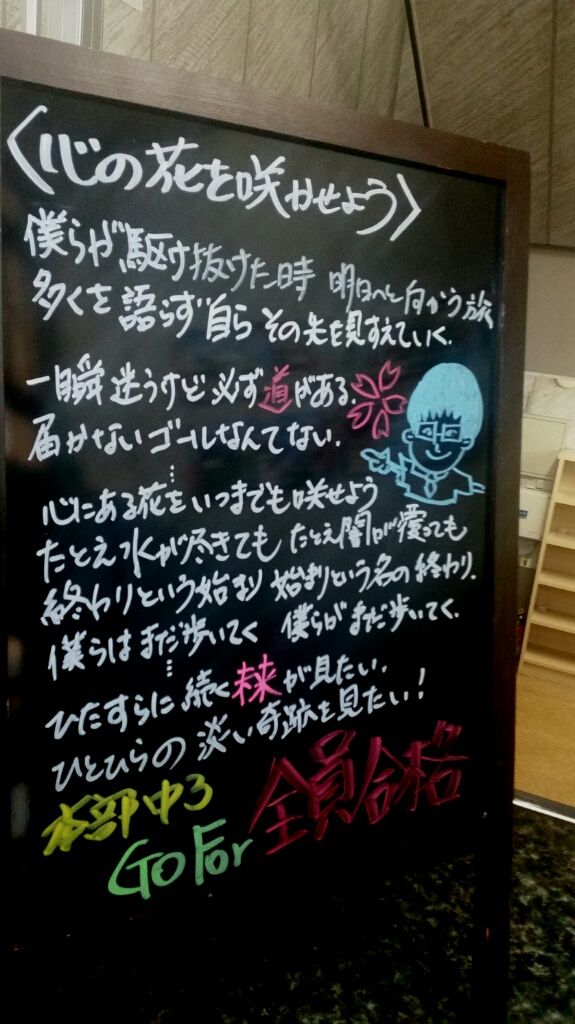 〈心の花を咲かせよう〉
僕らが駆け抜けた時 明日へと向かう旅
多くを語らず 自ら その先を見すえていく.
一瞬迷うけど 必ず道がある.
届かないゴールなんてない.
⋮
心にある花をいつまでも咲せよう
たとえ水が尽きても たとえ闇が覆っても
終わりという始まり 始まりという名の終わり.
僕らはまだ歩いてく 僕らがまだ歩いてく.
⋮
ひたすらに続く未来が見たい.
ひとひらの淡い奇跡を見たい!
本部中3
GO For 全員合格